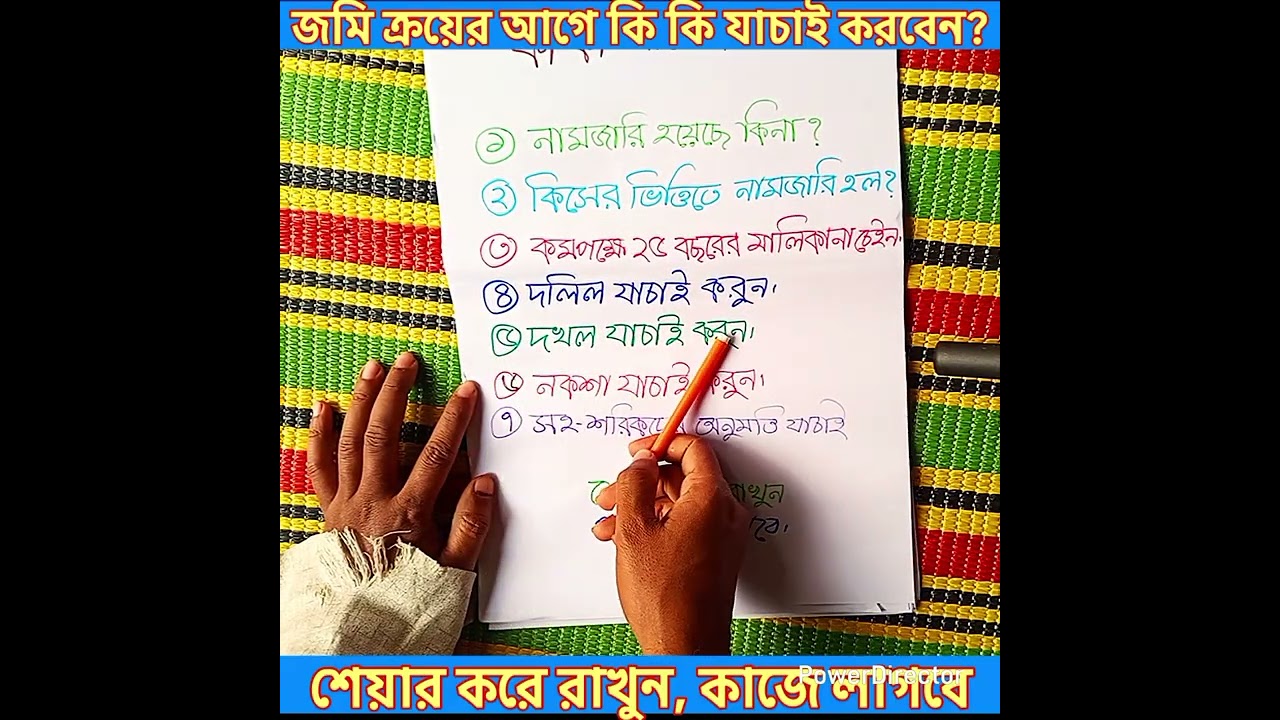 জমি ক্রয়ের আগে কি কি যাচাই করবেন?
১ নামজারি হয়েছে কিনা?
২ কিসের ভিত্তিতে নামজারি হল?
৩ কমপক্ষে ২৫ বছরের মালিকানা চেইন।
৪ দলিল যাচাই করুন।
৫ দখল যাচাই করুন।
৬ নকশা যাচাই করুন।
৭ সহ-শরিকদের অনুমতি যাচাই
শেয়ার করে রাখুন, কাজে লাগবে
PowerDirector